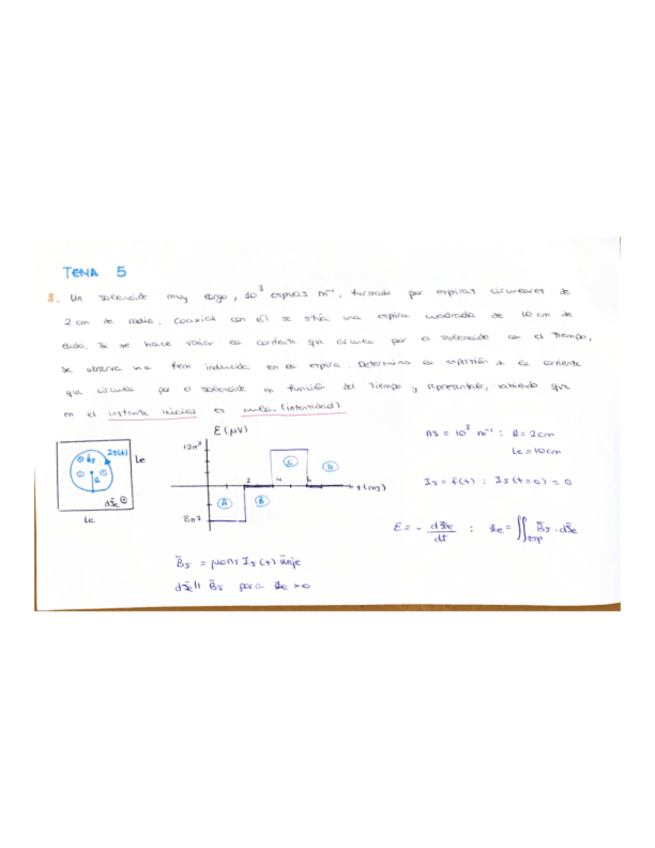 TEMA 5
8. Un solenoide muy largo, 10³ espiras m⁻¹, formado por espiras circulares de
2 cm de radio. Coaxial con él se sitúa una espira cuadrada de 10 cm de
lado. Si se hace variar la corriente que circula por el solenoide con el tiempo,
se observa una fem inducida en la espira. Determina la expresión de la corriente
que circula por el solenoide en función del tiempo y represéntalo, sabiendo que
en el instante inicial es nula. (intensidad)
ε (μV)
12π²
8π²
2 4 6 t (ms)
A B C D
Is(t)
Bs
R
Le
dSe
Le
ns = 10³ m⁻¹ : R = 2cm
Le = 10cm
Is = f(t) : Is (t=0) = 0
ε = - dΦe/dt : Φe = ∬esp B̄s · dSe
B̄s = μ0 ns Is (t) ūeje
dSe || B̄s para Φe > 0